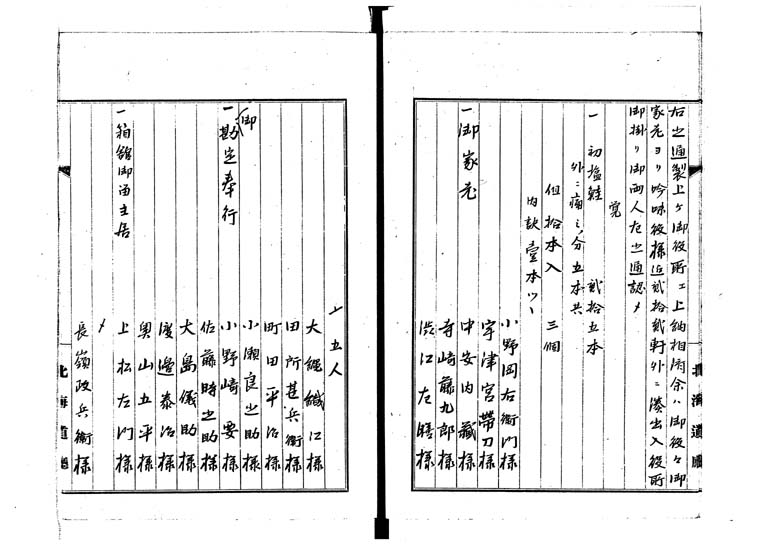 右之通製上ケ御役所エ上納相済余ハ御役々御
家老ヨリ吟味役様迄貳拾貳軒外ニ湊出入役所
御掛リ御両人左之通認メ
覚
一 初塩鮭 貳拾五本
外ニ痛ミノ分五本共
但拾本入 三個
内訳壹本ツヽ
一御家老
小野岡右衛門様
宇津宮帯刀様
中安内蔵様
寺崎藤九郎様
渋江左膳様
〆五人
大縄織江様
田所甚兵衛様
町田平治様
小瀬良之助様
一御勘定奉行
小野崎要様
佐藤時之助様
大島儀助様
渡邉泰治様
奥山五平様
一箱舘御留主居
上松左門様
〆
長嶺政兵衛様
北海道